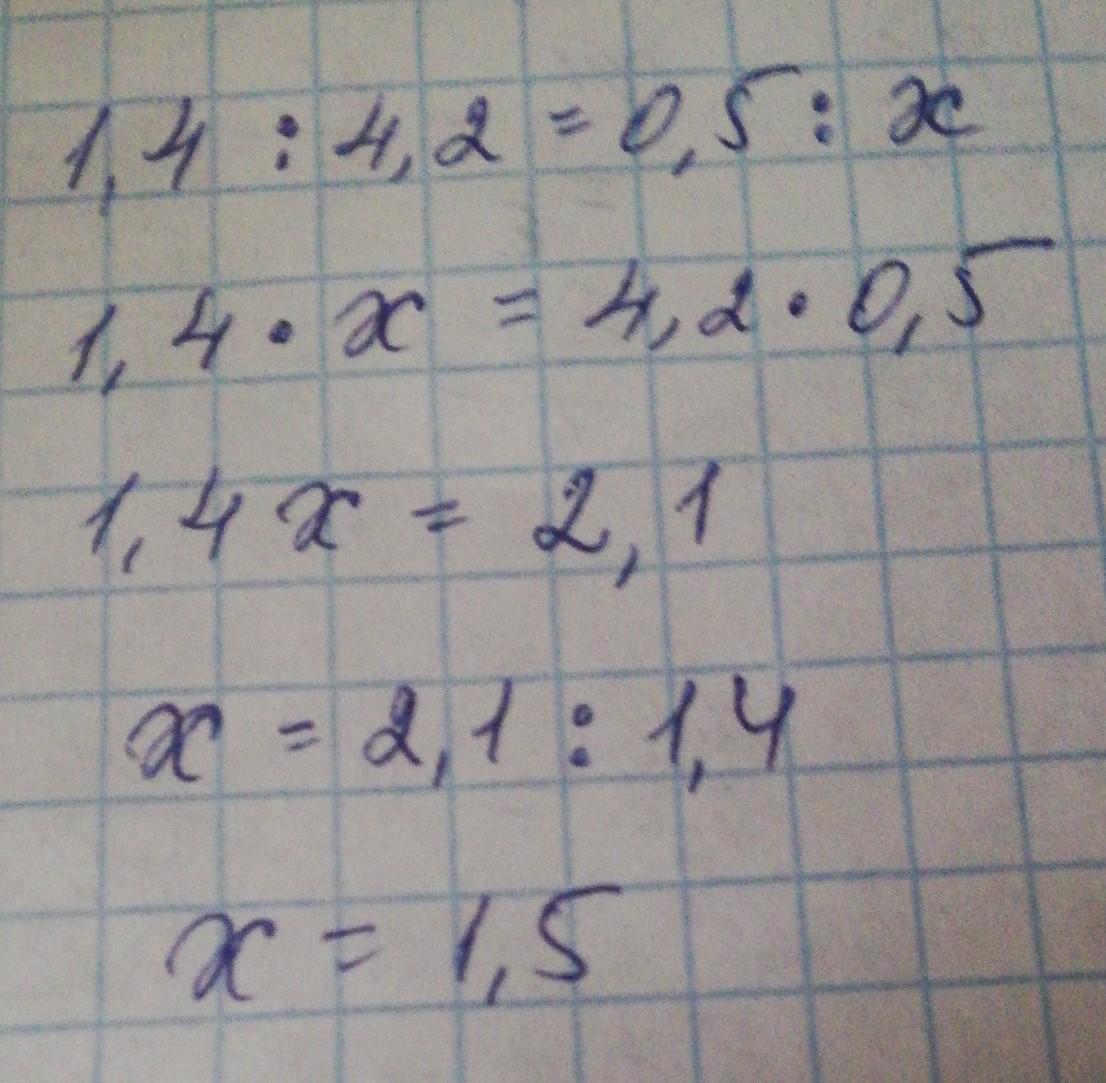 1,4 : 4,2 = 0,5 : x
1,4 · x = 4,2 · 0,5
1,4 x = 2,1
x = 2,1 : 1,4
x = 1,5